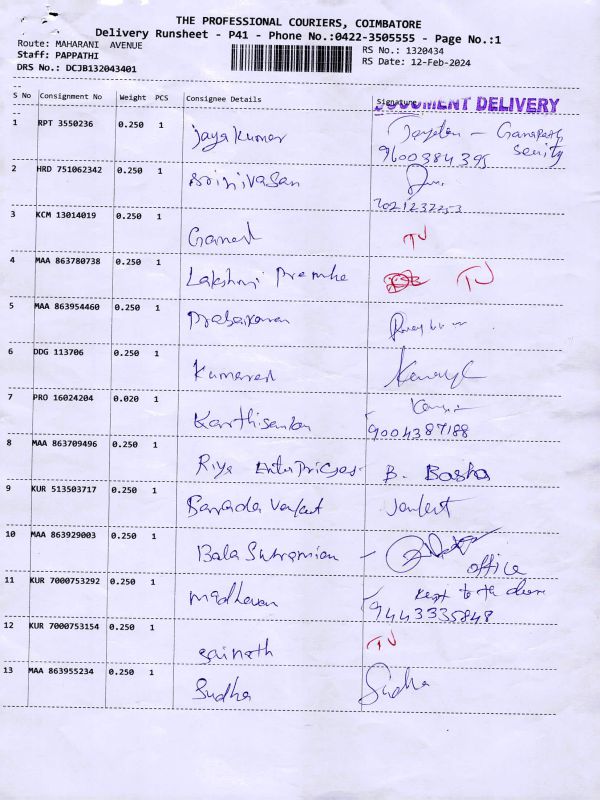 THE PROFESSIONAL COURIERS, COIMBATORE
Delivery Runsheet - P41 - Phone No.:0422-3505555 - Page No.:1
Route: MAHARANI AVENUE
RS No.: 1320434
Staff: PAPPATHI
RS Date: 12-Feb-2024
DRS No.: DCJB132043401
S No Consignment No Weight PCS Consignee Details Signature
DOCUMENT DELIVERY
1 RPT 3550236 0.250 1 Jayakumar
9600384395
2 HRD 751062342 0.250 1 Srinivasan
3 KCM 13014019 0.250 1 Ganesh TJ
4 MAA 863780738 0.250 1 Lakshmi TJ
5 MAA 863954460 0.250 1 Prabakaran
6 DDG 113706 0.250 1
7 PRO 16024204 0.020 1
9004387188
8 MAA 863709496 0.250 1 Riya Enterprises B. Basha
9 KUR 513503717 0.250 1
10 MAA 863929003 0.250 1 office
11 KUR 7000753292 0.250 1 madhavan
9443335848
12 KUR 7000753154 0.250 1 sainath TJ
13 MAA 863955234 0.250 1 Sudha Sudha